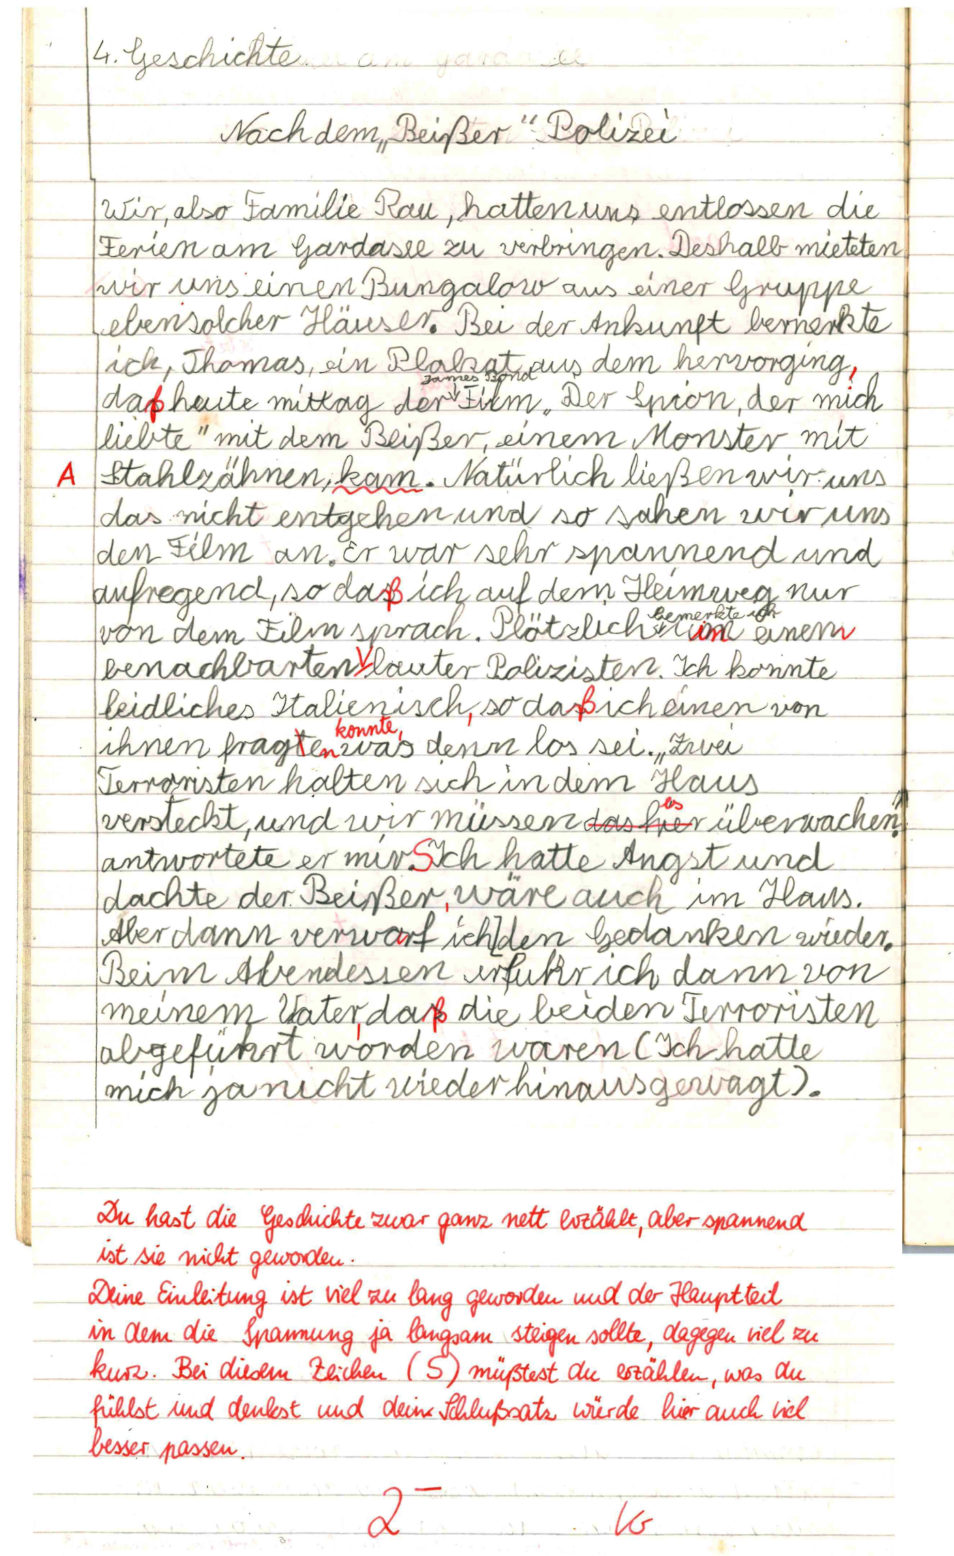 4. Geschichte
Nach dem „Beißer“ Polizei
Wir, also Familie Rau, hatten uns entlossen die
Ferien am Gardasee zu verbringen. Deshalb mieteten
wir uns einen Bungalow aus einer Gruppe
ebensolcher Häuser. Bei der Ankunft bemerkte
ich, Thomas, ein Plakat, aus dem hervorging,
James Bond
daß heute mittag der Film „Der Spion, der mich
liebte“ mit dem Beißer, einem Monster mit
A Stahlzähnen, kam. Natürlich ließen wir uns
das nicht entgehen und so sahen wir uns
den Film an. Er war sehr spannend und
aufregend, so daß ich auf dem Heimweg nur
bemerkte ich
von dem Film sprach. Plötzlich im einem
benachbarten lauter Polizisten. Ich konnte
leidliches Italienisch, so daß ich einen von
konnte,
ihnen fragten was denn los sei. „Zwei
Terroristen halten sich in dem Haus
es
versteckt, und wir müssen das hier überwachen“
antwortete er mir. S Ich hatte Angst und
dachte der Beißer, wäre auch im Haus.
Aber dann verwarf ich den Gedanken wieder.
Beim Abendessen erfuhr ich dann von
meinem Vater, daß die beiden Terroristen
abgeführt worden waren (Ich hatte
mich ja nicht wieder hinausgewagt).
Du hast die Geschichte zwar ganz nett erzählt, aber spannend
ist sie nicht geworden.
Deine Einleitung ist viel zu lang geworden und der Hauptteil
in dem die Spannung ja langsam steigen sollte, dagegen viel zu
kurz. Bei diesem Zeichen (S) müßtest du erzählen, was du
fühlst und denkst und deine Schlußsatz würde hier auch viel
besser passen.
2-